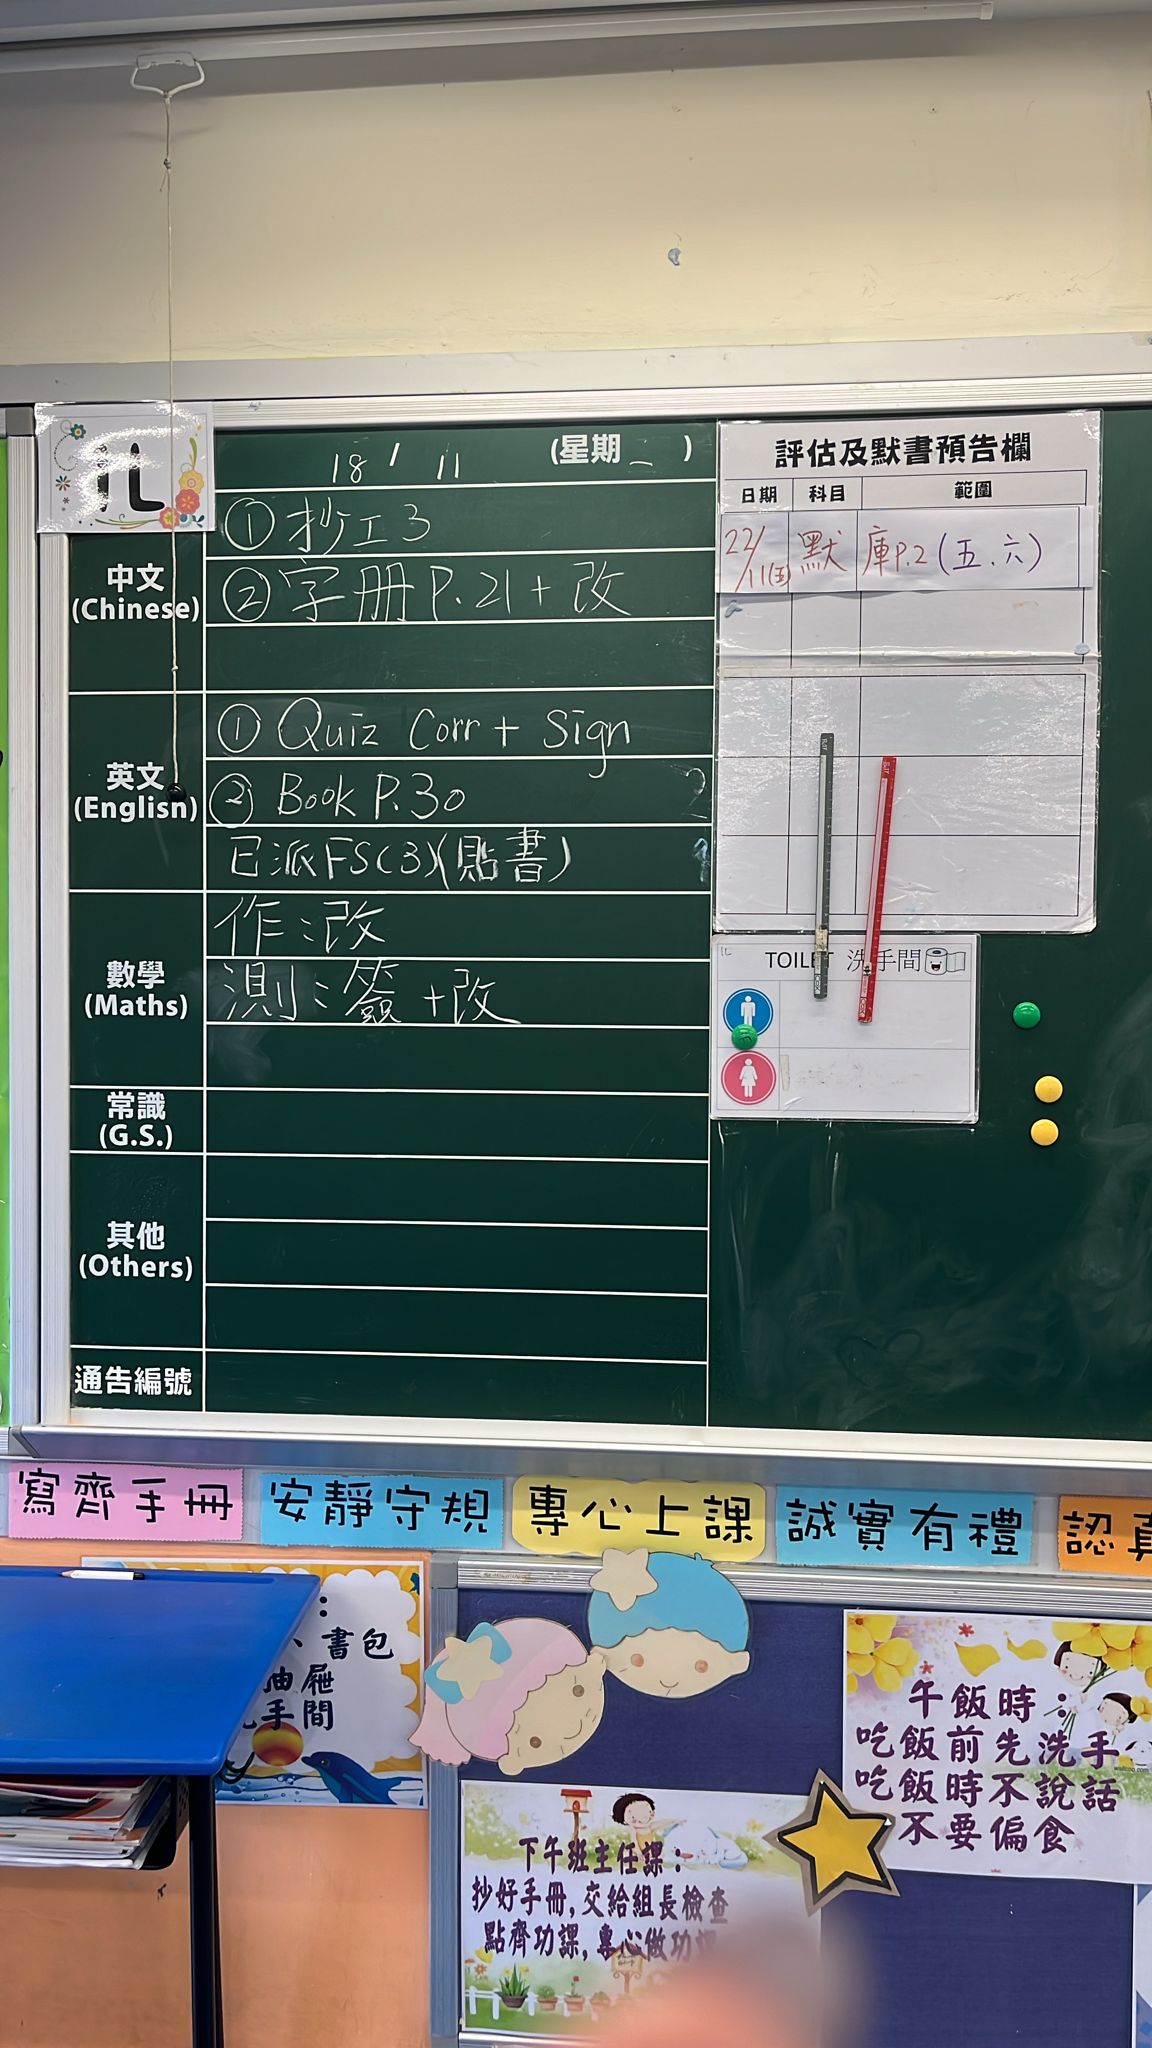 1L
18 / 11 (星期二)
中文
(Chinese)
① 抄工3
② 字册 P.21 + 改
英文
(English)
① Quiz Corr + Sign
② Book P.30
已派FS(3)(貼書)
數學
(Maths)
作:改
測:簽+改
常識
(G.S.)
其他
(Others)
通告編號
評估及默書預告欄
日期 科目 範圍
22/11(五) 默 庫P.2 (五、六)
TOILET 洗手間
寫齊手冊
安靜守規
專心上課
誠實有禮
認真
:
、書包
抽屜
手間
午飯時:
吃飯前先洗手
吃飯時不說話
不要偏食
下午班主任課:
抄好手冊,交給組長檢查
點齊功課,專心做功課